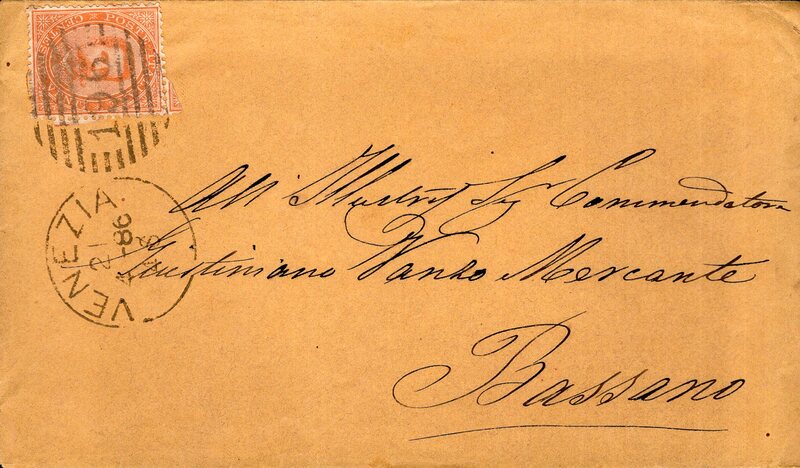 POSTE CENT
VENEZIA
21
86
All Illustriss Sigr Commendatore
Giustiniano Vanzo Mercante
Bassano